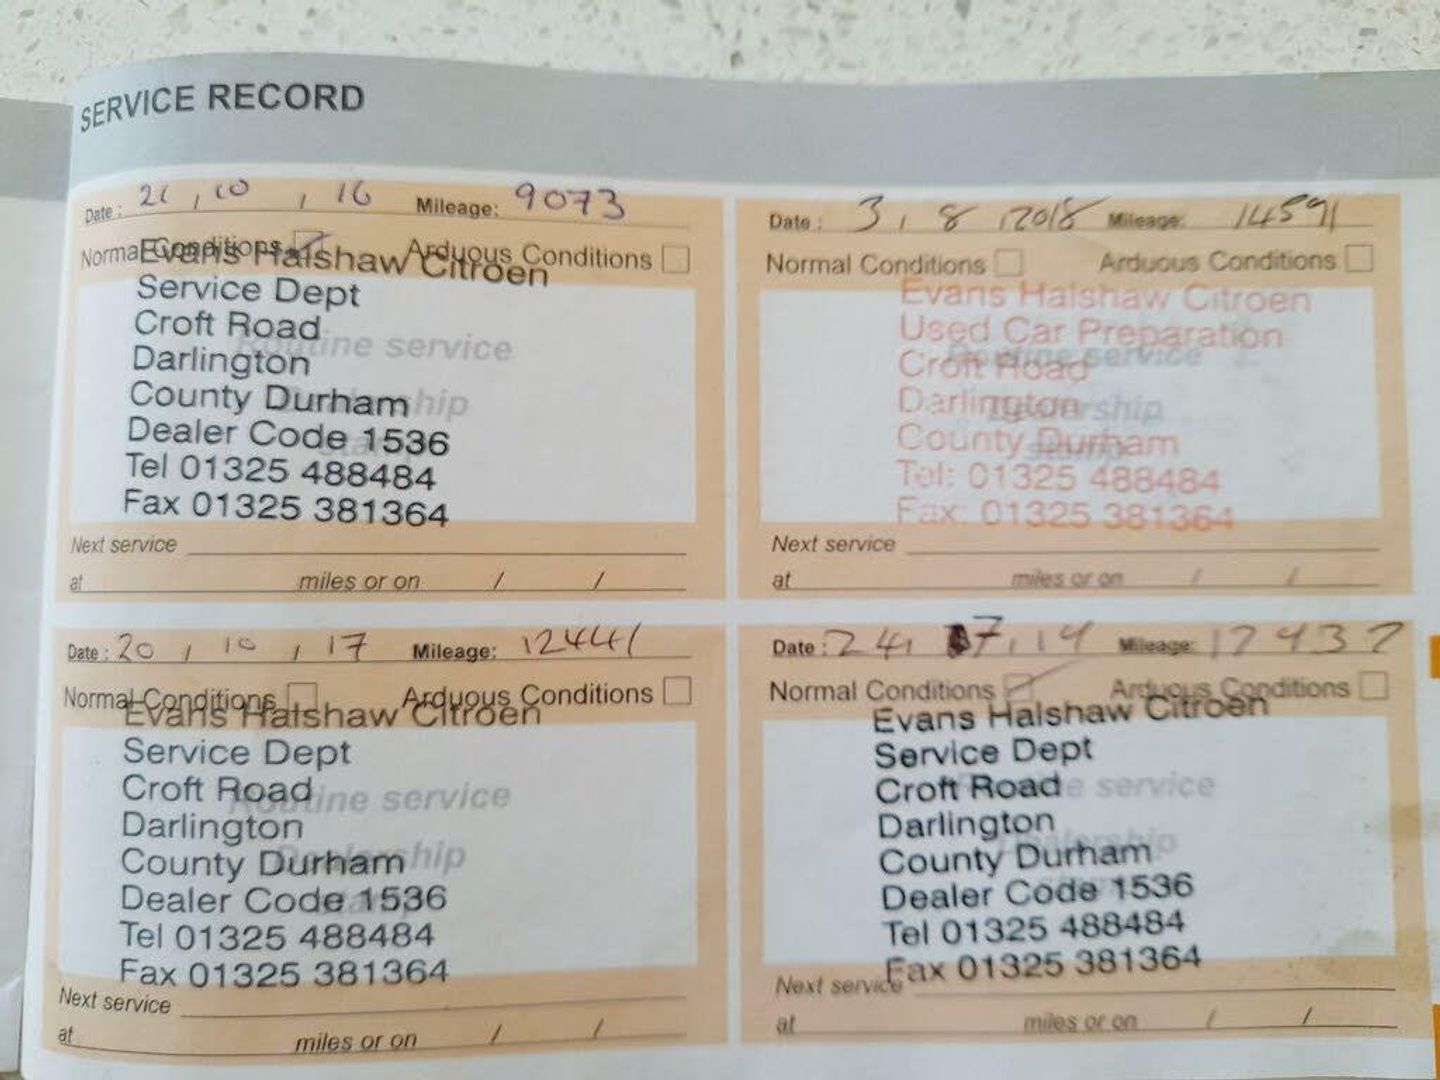 SERVICE RECORD
Date: 21, 10, 16 Mileage: 9073
Normal Conditions Arduous Conditions
Evans Halshaw Citroen
Service Dept
Croft Road
Darlington
County Durham
Dealer Code 1536
Tel 01325 488484
Fax 01325 381364
Routine service
Dealership
stamp
Next service
at miles or on / /
Date: 3, 8, 2018 Mileage: 14591
Normal Conditions Arduous Conditions
Evans Halshaw Citroen
Used Car Preparation
Croft Road
Darlington
County Durham
Tel: 01325 488484
Fax: 01325 381364
Routine service
Dealership
stamp
Next service
at miles or on / /
Date: 20, 10, 17 Mileage: 12441
Normal Conditions Arduous Conditions
Evans Halshaw Citroen
Service Dept
Croft Road
Darlington
County Durham
Dealer Code 1536
Tel 01325 488484
Fax 01325 381364
Routine service
Dealership
stamp
Next service
at miles or on / /
Date: 24, 7, 19 Mileage:
Normal Conditions Arduous Conditions
Evans Halshaw Citroen
Service Dept
Croft Road
Darlington
County Durham
Dealer Code 1536
Tel 01325 488484
Fax 01325 381364
Routine service
Dealership
stamp
Next service
at miles or on / /